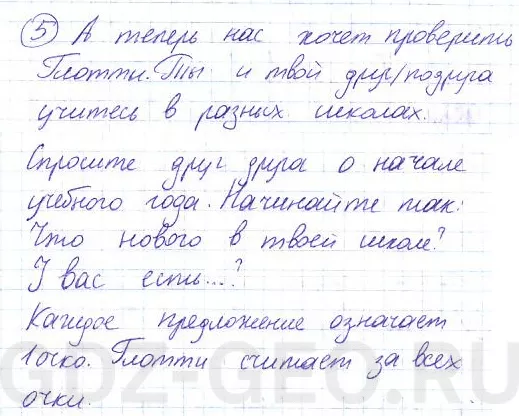 5 А теперь нас хочет проверить
Глотти. Ты и твой друг/подруга
учитесь в разных школах.
Спросите друг друга о начале
учебного года. Начинайте так:
Что нового в твоей школе?
У вас есть...?
Каждое предложение означает
1 очко. Глотти считает за всех
очки.
GDZ-GEO.RU